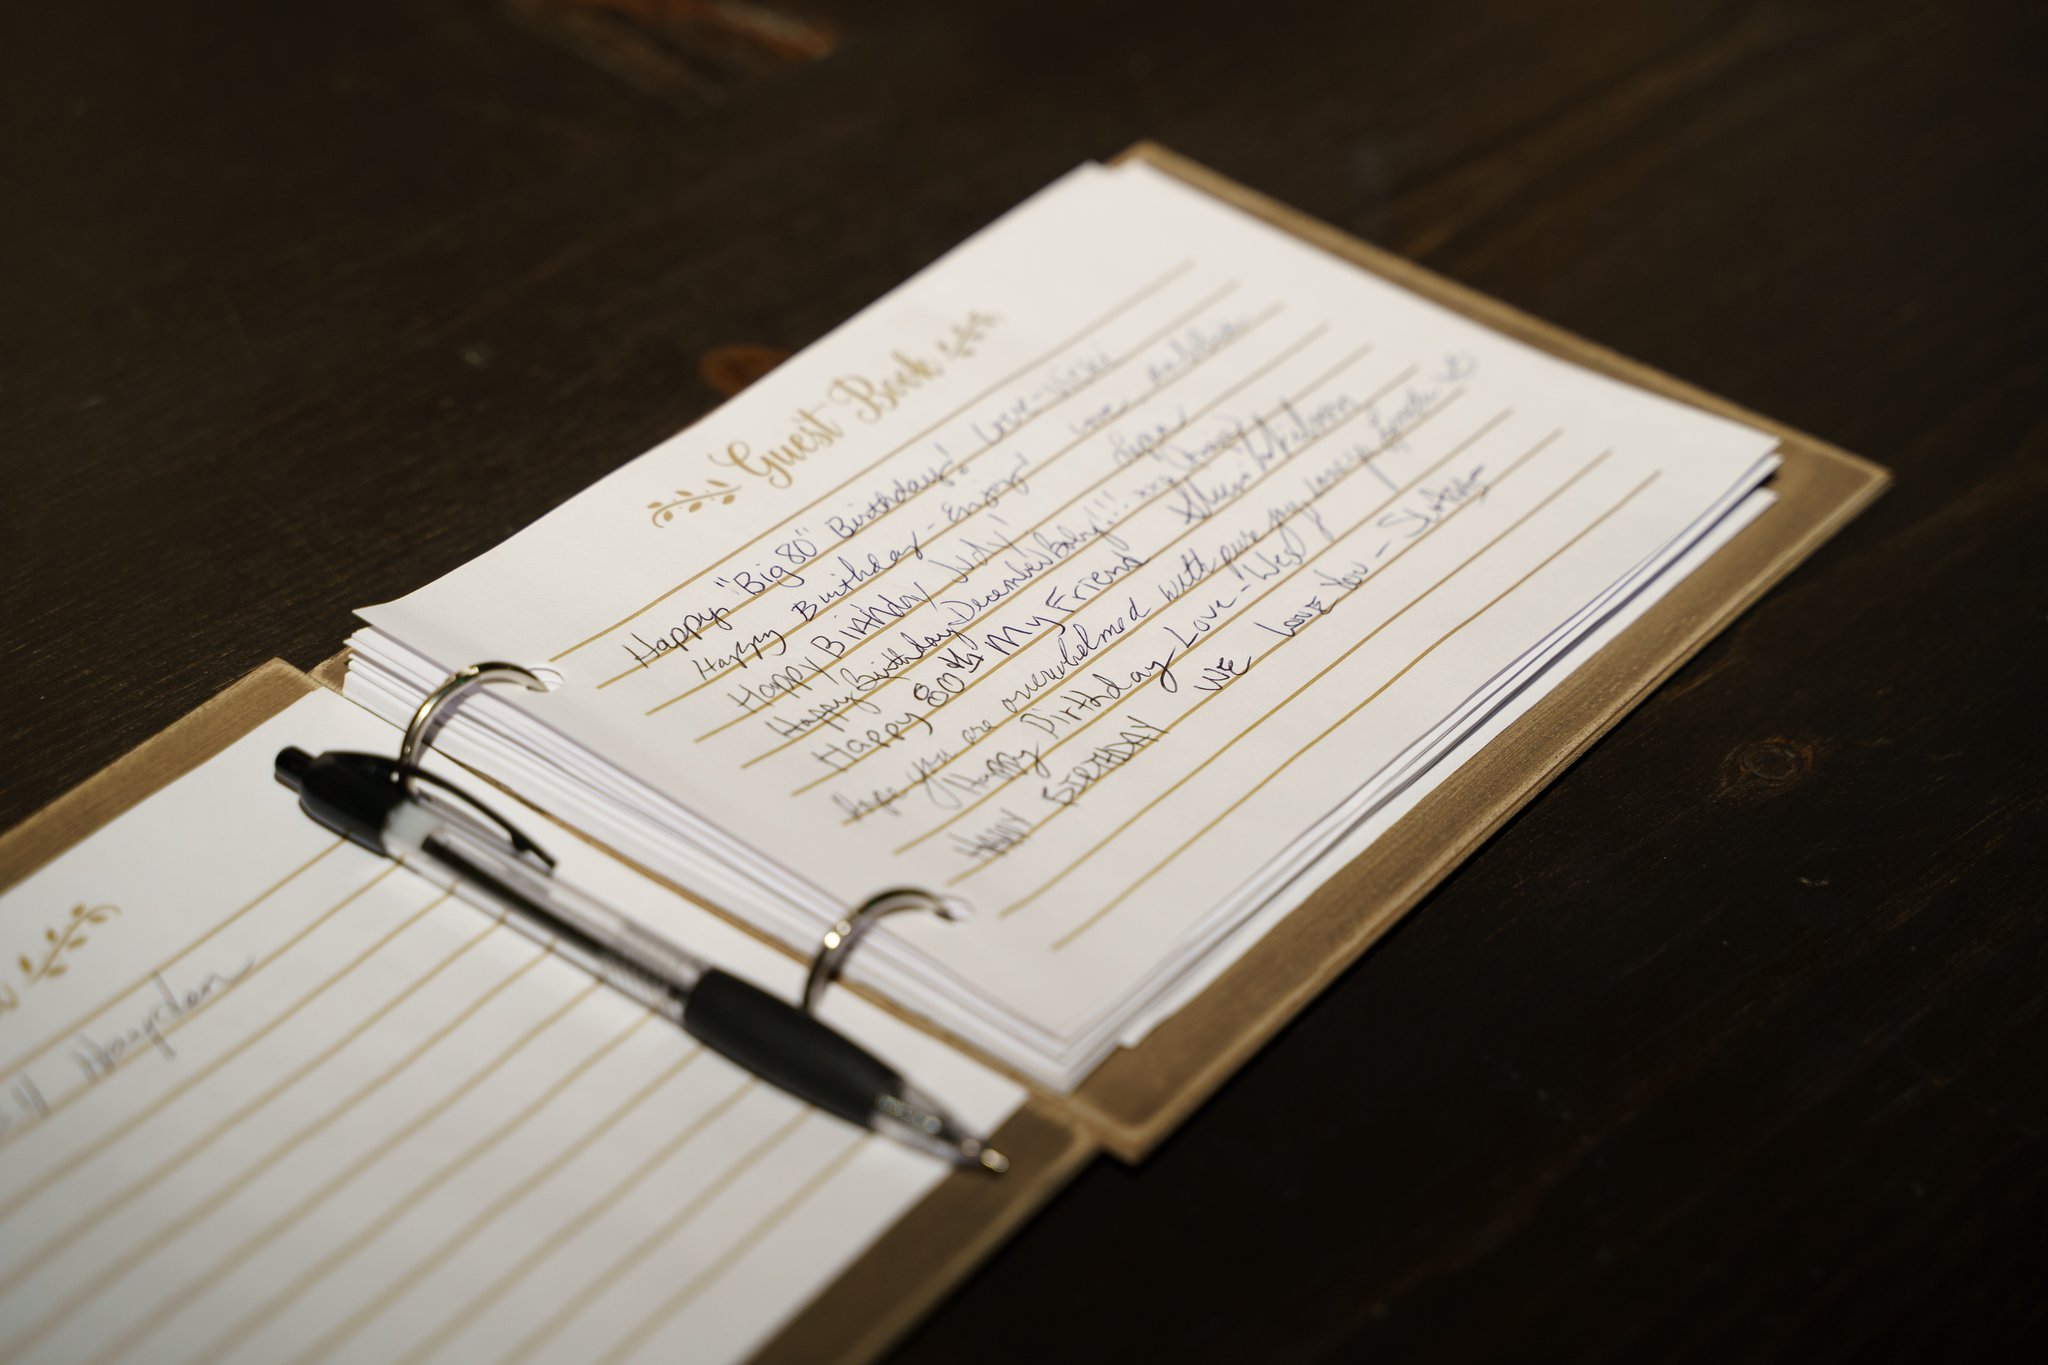 Hayden
Guest Book
Happy "Big 80" Birthday! Love - Nikki
Happy Birthday - Enjoy! Love,
HAPPY BIRTHDAY JUDY
Happy Birthday December Baby!!!
Happy 80th My Friend
hope you are overwhelmed with pure joy
Happy Birthday Love - Wes
HAPPY BIRTHDAY WE LOVE YOU -